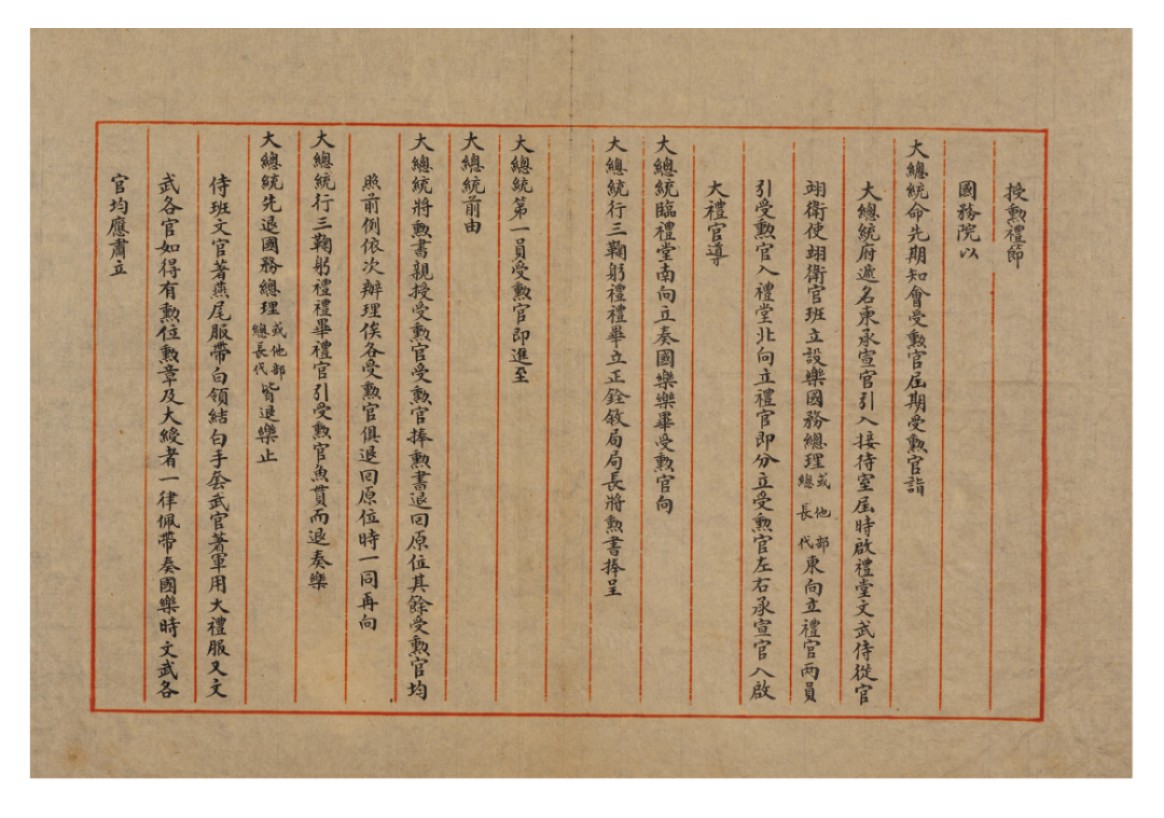 授勲禮節
國務院以
大總統命先期知會受勲官屆期受勲官詣
大總統府遞名柬承宣官引入接待室屆時啟禮堂文武侍從官
翊衛使翊衛官班立設樂國務總理或他部總長代東向立禮官兩員
引受勲官入禮堂北向立禮官即分立受勲官左右承宣官入啟
大禮官導
大總統臨禮堂南向立奏國樂樂畢受勲官向
大總統行三鞠躬禮禮畢立正銓敘局局長將勲書捧呈
大總統第一員受勲官即進至
大總統前由
大總統將勲書親授受勲官受勲官捧勲書退回原位其餘受勲官均
照前例依次辦理俟各受勲官俱退回原位時一同再向
大總統行三鞠躬禮禮畢禮官引受勲官魚貫而退奏樂
大總統先退國務總理或他部總長代皆退樂止
侍班文官著燕尾服帶白領結白手套武官著軍用大禮服又文
武各官如得有勲位勲章及大綬者一律佩帶奏國樂時文武各
官均應肅立